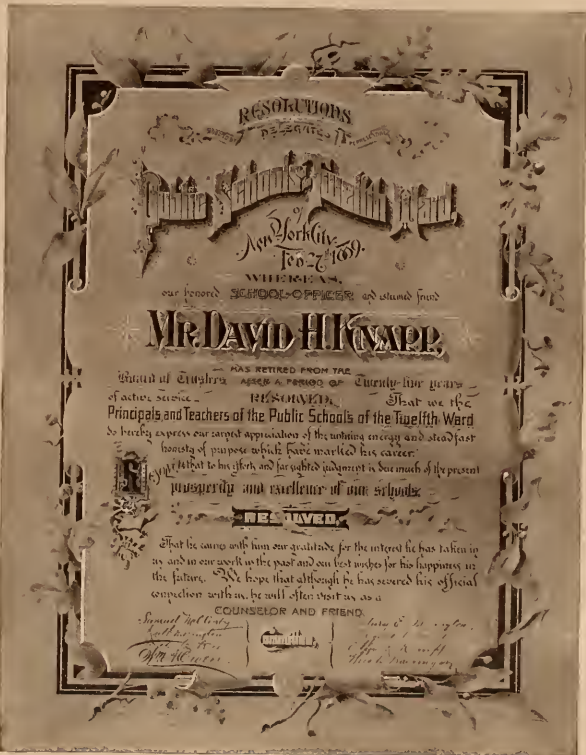 RESOLUTIONS
DELEGATES
Public Schools Twelfth Ward,
of
New York City
Feb 27th 1889.
WHEREAS,
our honored SCHOOL-OFFICER and esteemed friend
MR. DAVID H. KNAPP,
HAS RETIRED FROM THE
Board of Trustees AFTER A PERIOD OF Twenty-five years
of active service - RESOLVED: That we the
Principals and Teachers of the Public Schools of the Twelfth Ward
do hereby express our earnest appreciation of the untiring energy and steadfast
honesty of purpose which have marked his career.
that to his efforts and far sighted judgment is due much of the present
prosperity and excellence of our schools
RESOLVED,
That he carries with him our gratitude for the interest he has taken in
us and in our work in the past and our best wishes for his happiness in
the future. We hope that although he has severed his official
connection with us, he will often visit us as a
COUNSELOR AND FRIEND.
Samuel
Committee